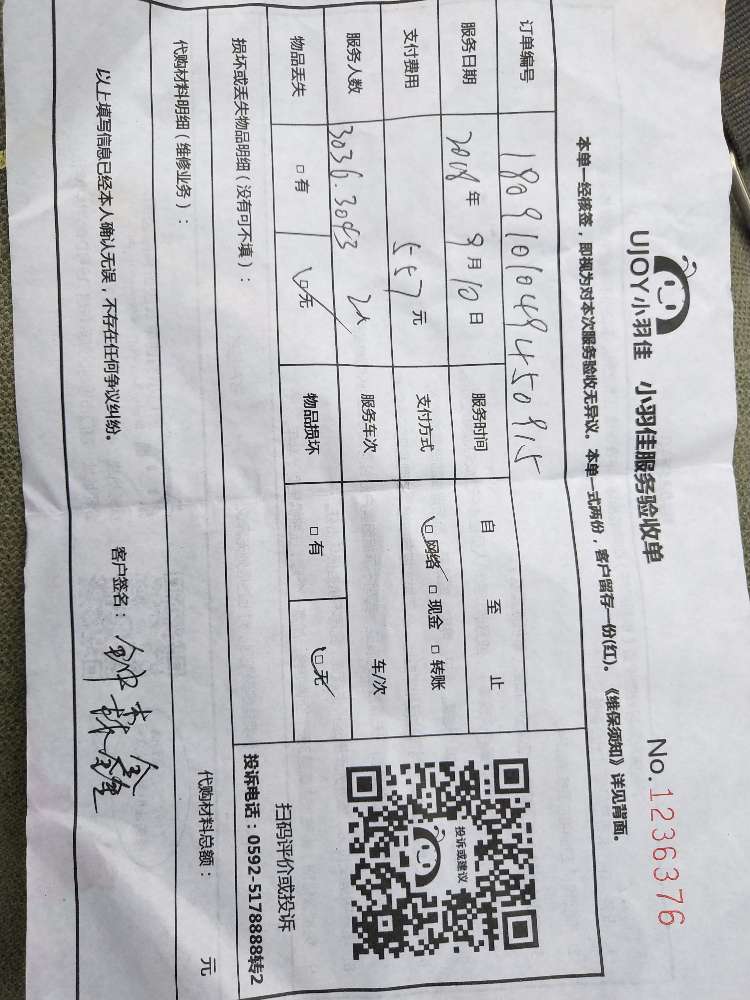 UJOY小羽佳 小羽佳服务验收单 No.1236376
本单一经核签，即视为对本次服务验收无异议。本单一式两份，客户留存一份(红)。《维保须知》详见背面。
订单编号 1809101049450915
服务日期 2018年9月10日 服务时间 自 至 止
支付费用 557元 支付方式 □网络 □现金 □转账
服务人数 3036.3043 2人 服务车次 车/次
物品丢失 □有 □无 物品损坏 □有 □无
投诉或建议
扫码评价或投诉
投诉电话：0592-5178888转2
损坏或丢失物品明细（没有可不填）：
代购材料明细（维修业务）： 代购材料总额： 元
以上填写信息已经本人确认无误，不存在任何争议纠纷。 客户签名：